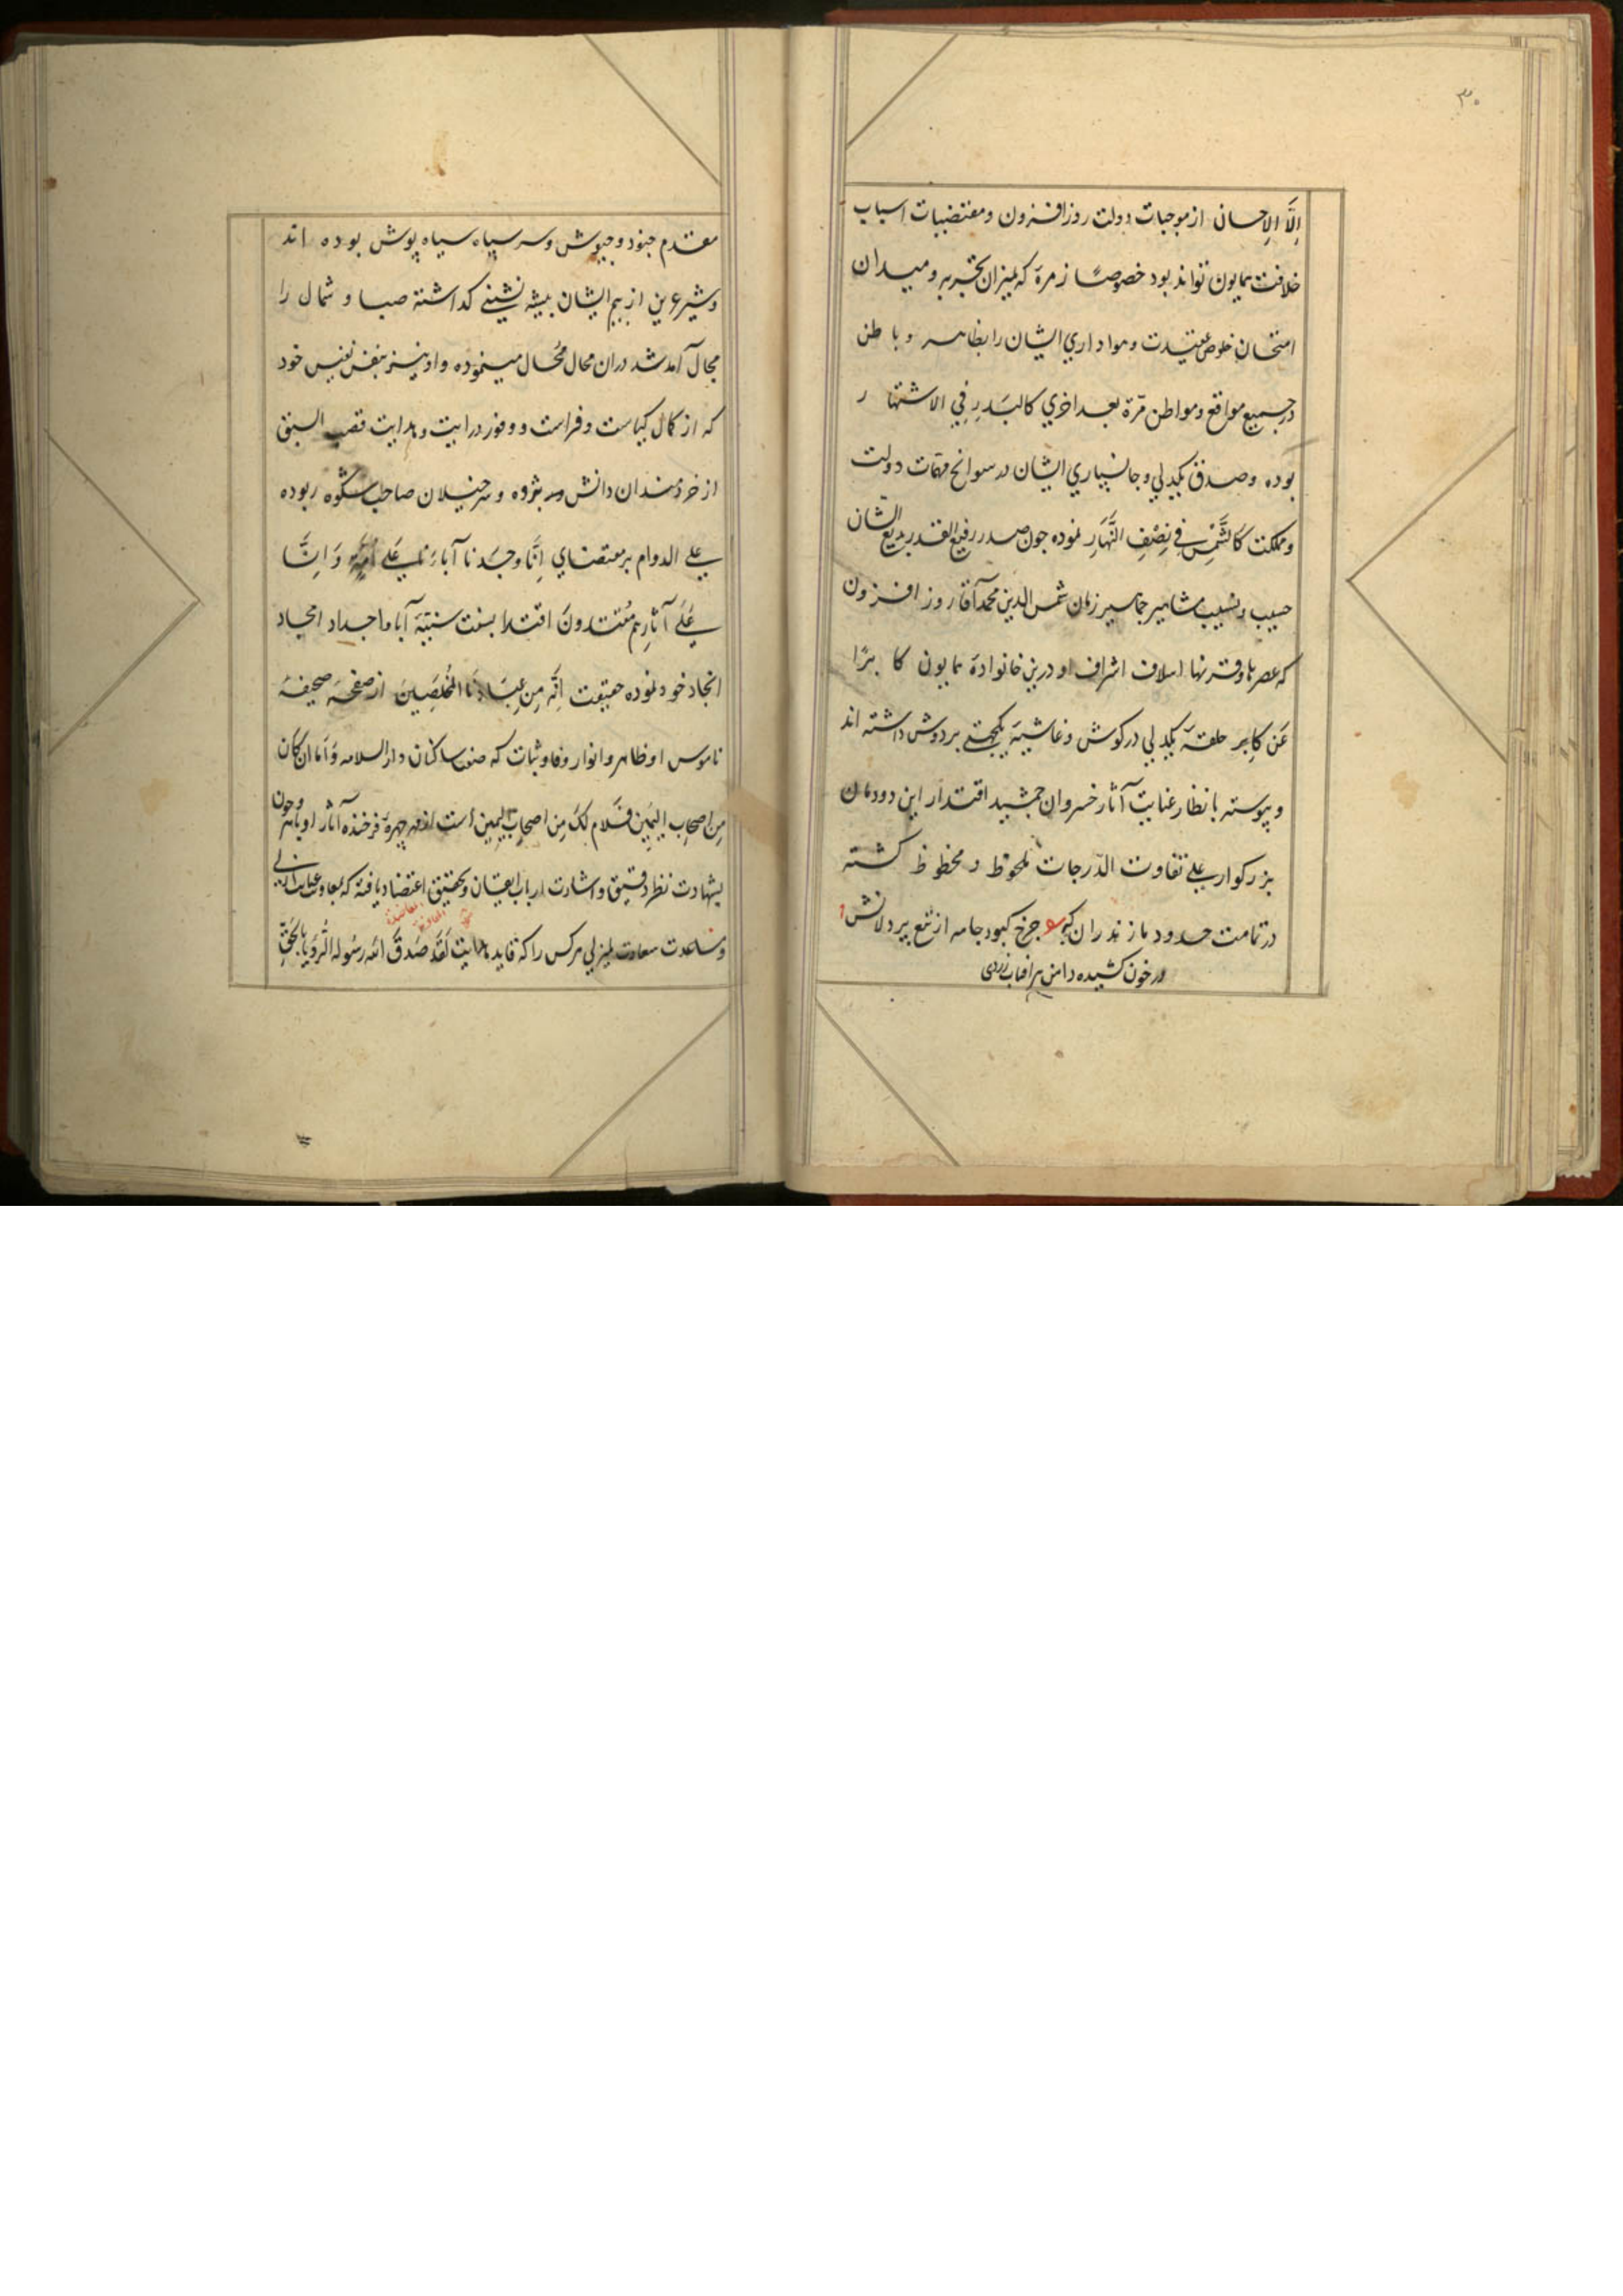 ۳۰
اِلَّا الاِحسان از موجبات دولت روز افزون و مقتضیات اسباب
خلافت همایون تواند بود خصوصًا زمرهٔ که بمیزان تجربه و میدان
امتحان خلوص عقیدت و هواداری ایشان را بظاهر و باطن
در جمیع مواقع و مواطن مرّة بعد اخری کالبَدرِ فِی الاشتهار
بوده و صدق یکدلی و جانسپاری ایشان در سوانح مهمّات دولت
و مملکت کَالشَّمسِ فی نِصْفِ النَّهارِ نموده چون صدر رفیع القدر بدیع الشان
حسیب و نسیب مشاهیر جماهیر زمان شمس الدین محمد آقا روز افزون
که عصرها و قرنها اسلاف اشراف او درین خانوادهٔ همایون کابرًا
عَن کابِر حلقهٔ یکدلی در کوش و غاشیهٔ یکجهتی بر دوش داشته اند
و پیوسته بانظار عنایت آثار خسروان جمشید اقتدار این دودمان
بزرکوار علی تفاوت الدّرجات ملحوظ و محظوظ کشته
در تمامت حدود مازندران که چرخ کبود جامه از تیغ پردلانش
در خون کشیده دامن بر آفتاب زردی
مقدم جنود و جیوش و سر سپاه سیاه پوش بوده اند
و شیر عرین از بیم ایشان بیشه نشینی کذاشته صبا و شمال را
مجال آمد شد دران محال مُحال مینموده و او نیز بنفس نفیس خود
که از کمال کیاست و فراست و وفور درایت و هدایت قصب السبق
از خردمندان دانش پژوه و سرخیلان صاحب شکوه ربوده
علی الدوام بر مقتضای اِنّا وجَدنا آباءَنا عَلی اُمَّةٍ وَ اِنّا
عَلی آثارِهِم مُقتدونَ اقتدا بسنت سنیّهٔ آبا و اجداد امجاد
انجاد خود نموده حقیقت اِنّه مِن عِبَادنَا المُخلَصِینَ از صفحهٔ صحیفهٔ
ناموس او ظاهر و انوار وفا و ثبات که صفت ساکنان دار السلام وَ اَمّا ان کان
مِن اصحابِ الیَمین فسَلام لکَ مِن اصحابِ الیمین است از چهرهٔ فرخنده آثار او باهر و چون
بشهادت نظر دقیق و اشارت ارباب ایقان و تحقیق اعتضاد یافته که بمعاونت عنایت ازلی
و مساعدت سعادت لم یزلی هر کس را که قاید هدایت لَقَد صَدَقَ اللّه رَسُوله الرُّویا بالحَقِّ